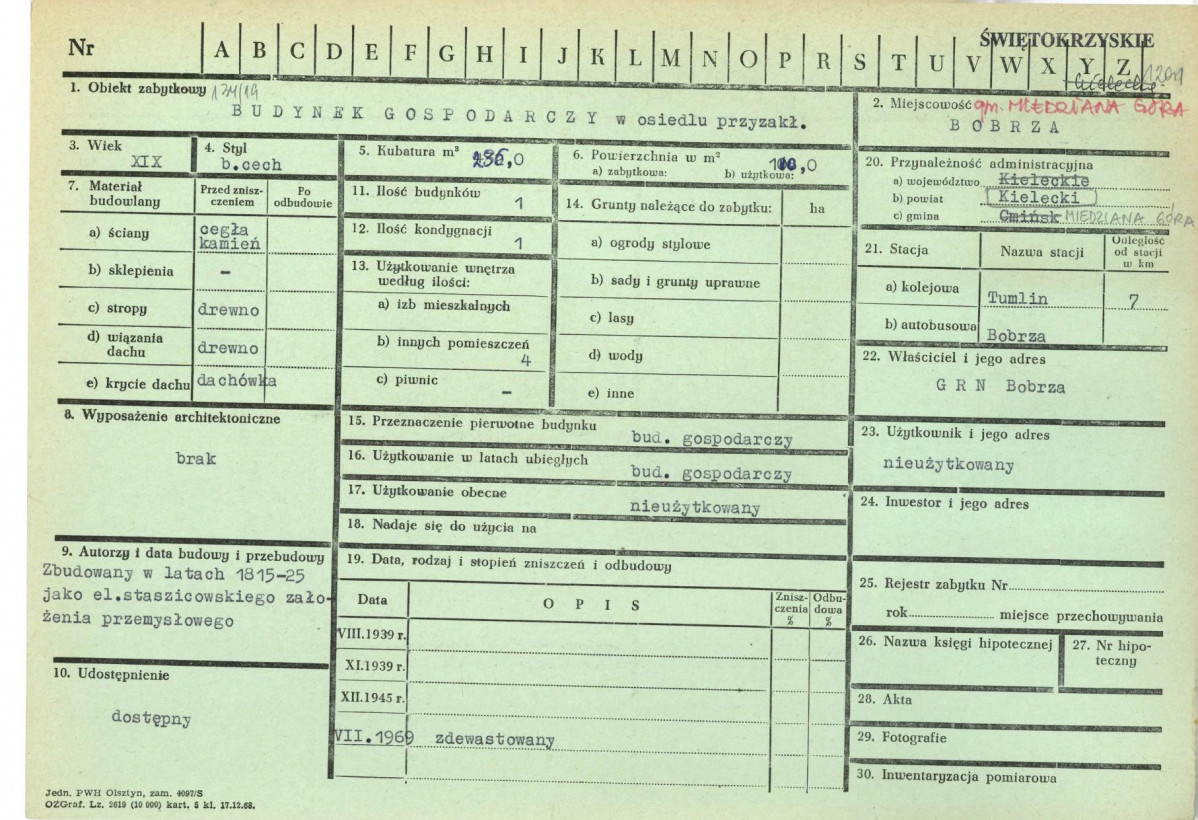 Nr A B C D E F G H I J K L M N O P R S T U V W X Y Z
ŚWIĘTOKRZYSKIE
kieleckie
1. Obiekt zabytkowy
BUDYNEK GOSPODARCZY w osiedlu przyzakł.
2. Miejscowość gm. MIEDZIANA GÓRA
BOBRZA
3. Wiek
XIX
4. Styl
b.cech
5. Kubatura m³
,0
6. Powierzchnia w m²
a) zabytkowa: b) użytkowa:
,0
7. Materiał budowlany
Przed zniszczeniem
Po odbudowie
a) ściany cegła kamień
b) sklepienia –
c) stropy drewno
d) wiązania dachu drewno
e) krycie dachu dachówka
8. Wyposażenie architektoniczne
brak
9. Autorzy i data budowy i przebudowy
Zbudowany w latach 1815-25
jako el.staszicowskiego zało-
żenia przemysłowego
10. Udostępnienie
dostępny
11. Ilość budynków
1
12. Ilość kondygnacji
1
13. Użytkowanie wnętrza
według ilości:
a) izb mieszkalnych
b) innych pomieszczeń
4
c) piwnic
–
14. Grunty należące do zabytku: ha
a) ogrody stylowe
b) sady i grunty uprawne
c) lasy
d) wody
e) inne
15. Przeznaczenie pierwotne budynku
bud. gospodarczy
16. Użytkowanie w latach ubiegłych
bud. gospodarczy
17. Użytkowanie obecne
nieużytkowany
18. Nadaje się do użycia na
19. Data, rodzaj i stopień zniszczeń i odbudowy
Data OPIS Zniszczenia % Odbudowa %
VIII.1939 r.
XI.1939 r.
XII.1945 r.
VII.1969 zdewastowany
20. Przynależność administracyjna
a) województwo Kieleckie
b) powiat Kielecki
c) gmina Gmińsk MIEDZIANA GÓRA
21. Stacja Nazwa stacji Odległość od stacji w km
a) kolejowa Tumlin 7
b) autobusowa Bobrza
22. Właściciel i jego adres
GRN Bobrza
23. Użytkownik i jego adres
nieużytkowany
24. Inwestor i jego adres
25. Rejestr zabytku Nr
rok miejsce przechowywania
26. Nazwa księgi hipotecznej
27. Nr hipo-
teczny
28. Akta
29. Fotografie
30. Inwentaryzacja pomiarowa
Jedn. PWH Olsztyn, zam. 4097/S
OZGraf. Lz. 2619 (10 000) kart. 5 kl. 17.12.68.